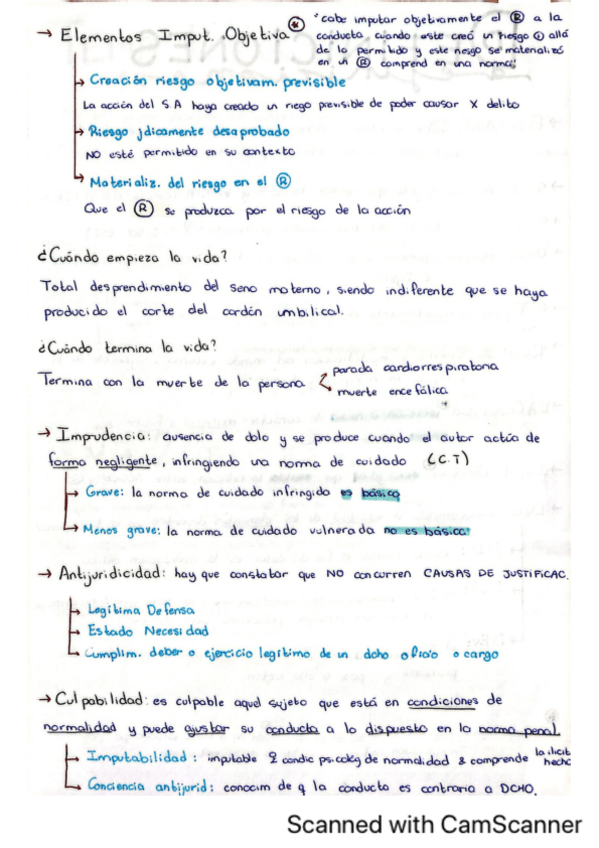 → Elementos Imput. Objetiva ⊛
"cabe imputar objetivamente el Ⓡ a la
conducta cuando este creó un riesgo ⊕ allá
de lo permitido y este riesgo se materializó
en un Ⓡ comprend en una norma"
→ Creación riesgo objetivam. previsible
La acción del S.A haya creado un riego previsible de poder causar X delito
→ Riesgo jdicamente desaprobado
NO esté permitido en su contexto
→ Materializ. del riesgo en el Ⓡ
Que el Ⓡ se produzca por el riesgo de la acción
¿Cuándo empieza la vida?
Total desprendimiento del seno materno, siendo indiferente que se haya
producido el corte del cordón umbilical.
¿Cuándo termina la vida?
Termina con la muerte de la persona
parada cardiorrespiratoria
muerte encefálica
→ Imprudencia: ausencia de dolo y se produce cuando el autor actúa de
forma negligente, infringiendo una norma de cuidado (C.T)
→ Grave: la norma de cuidado infringido es básica
→ Menos grave: la norma de cuidado vulnerada no es básica
→ Antijuridicidad: hay que constatar que NO concurren CAUSAS DE JUSTIFICAC.
→ Legítima Defensa
→ Estado Necesidad
→ Cumplim. deber o ejercicio legítimo de un dcho oficio o cargo
→ Culpabilidad: es culpable aquel sujeto que está en condiciones de
normalidad y puede ajustar su conducta a lo dispuesto en la norma penal
→ Imputabilidad: imputable 2 condic psicolog de normalidad & comprende la ilicit
hecho
→ Conciencia antijurid: conocim de q la conducta es contraria a DCHO.
Scanned with CamScanner